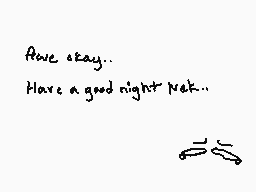 Awe okay..
Have a good night Nek..